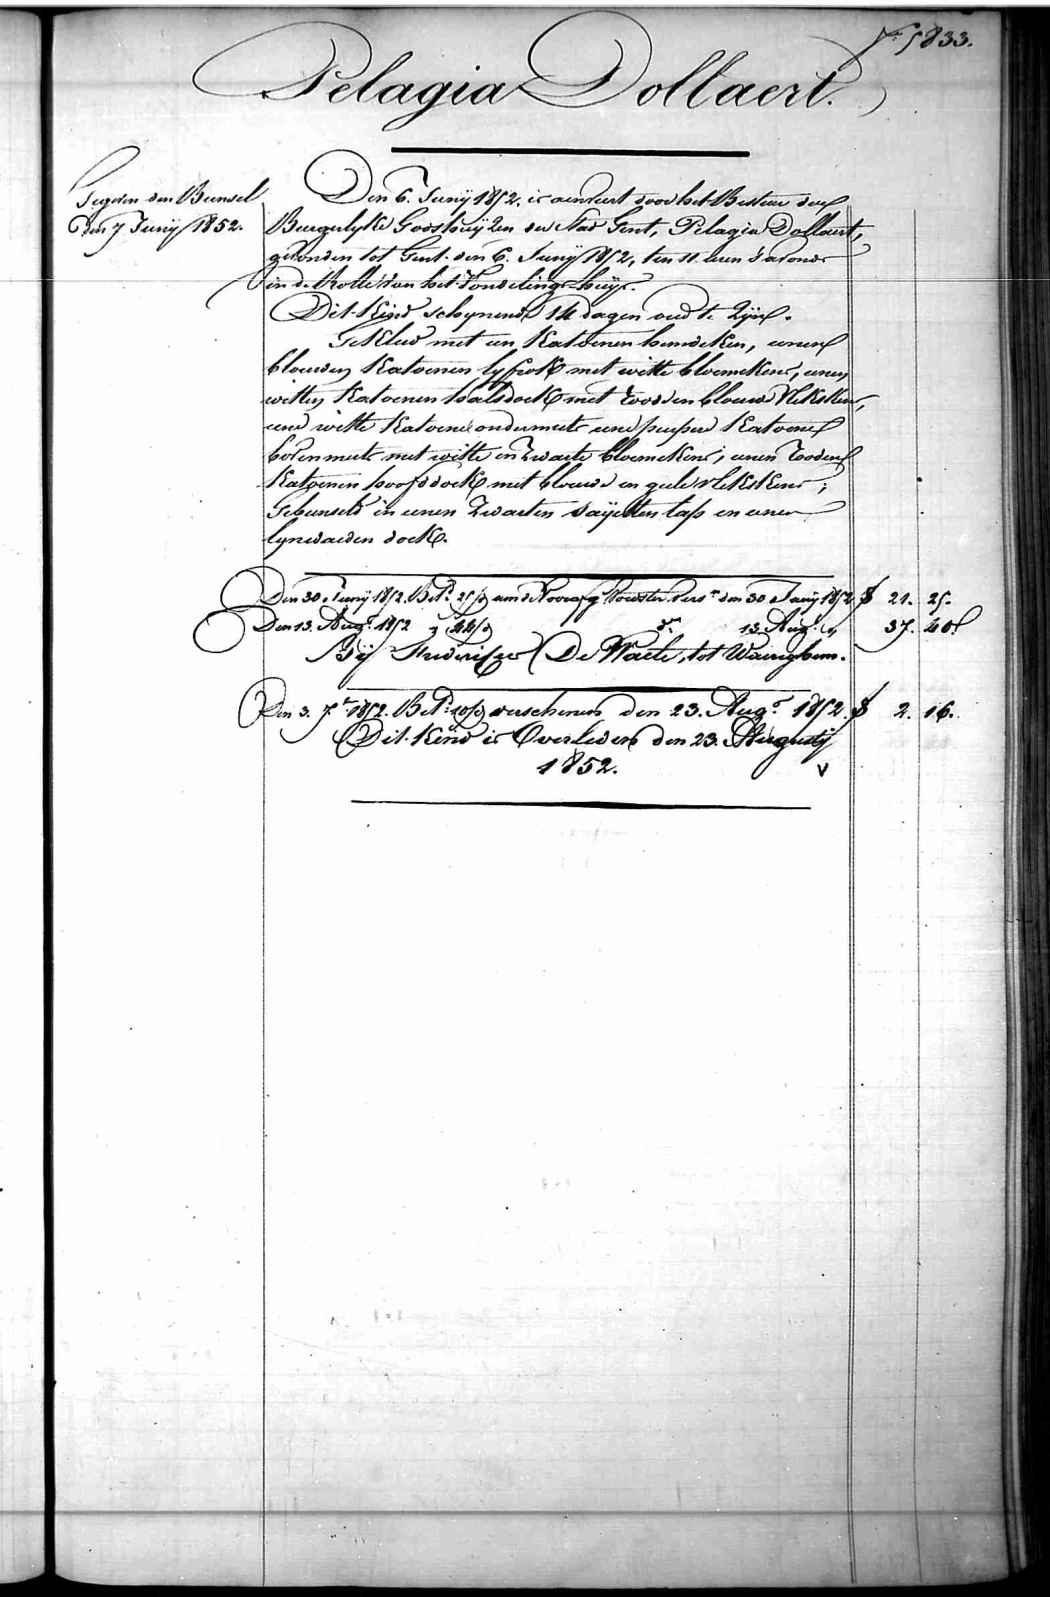 N° 5833.
Pelagia Dollaert.
Gegeven den Bunsel
den 7 Junij 1852.
Den 6. Junij 1852, is aenveert door het Bestuer der
Burgerlyke Godshuyzen der Stad Gent, Pelagia Dollaert,
gevonden tot Gent den 6. Junij 1852, ten 11. uren s'avonds
in de Rolle van het Vondelinge-huys.
Dit Kind schynende 14 dagen oud te zyn.
Gekleed met een Katoenen hemdeken, eenen
blauwen Katoenen lyfrok met witte bloemekens, eenen
witten Katoenen halsdoek met rood en blauwe vlekskens,
eene witte Katoene ondermuts eene purpere Katoene
bovenmuts met witte en zwarte bloemekens; eenen rooden
Katoenen hoofddoek met blauwe en gele vlekskens;
Gebunseld in eenen zwarten sayetten lap en eenen
lynwaeden doek.
Den 30. Junij 1852. Bet. 25/9 aen de Voorafg. Voedster Vers. den 30 Junij 1852 21. 25.
Den 13. Aug.t 1852 " 44/9 d.° 13. Aug.t " 37. 40.
By De Waele, tot Waereghem.
Den 3. 7.r 1852. Bet. 10/9 verschenen den 23. Aug.t 1852. 2. 16.
Dit Kind is Overleden den 23. Augusty
1852.